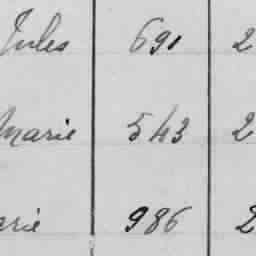 Jules 690 2
Marie 543 2
arie 986 2